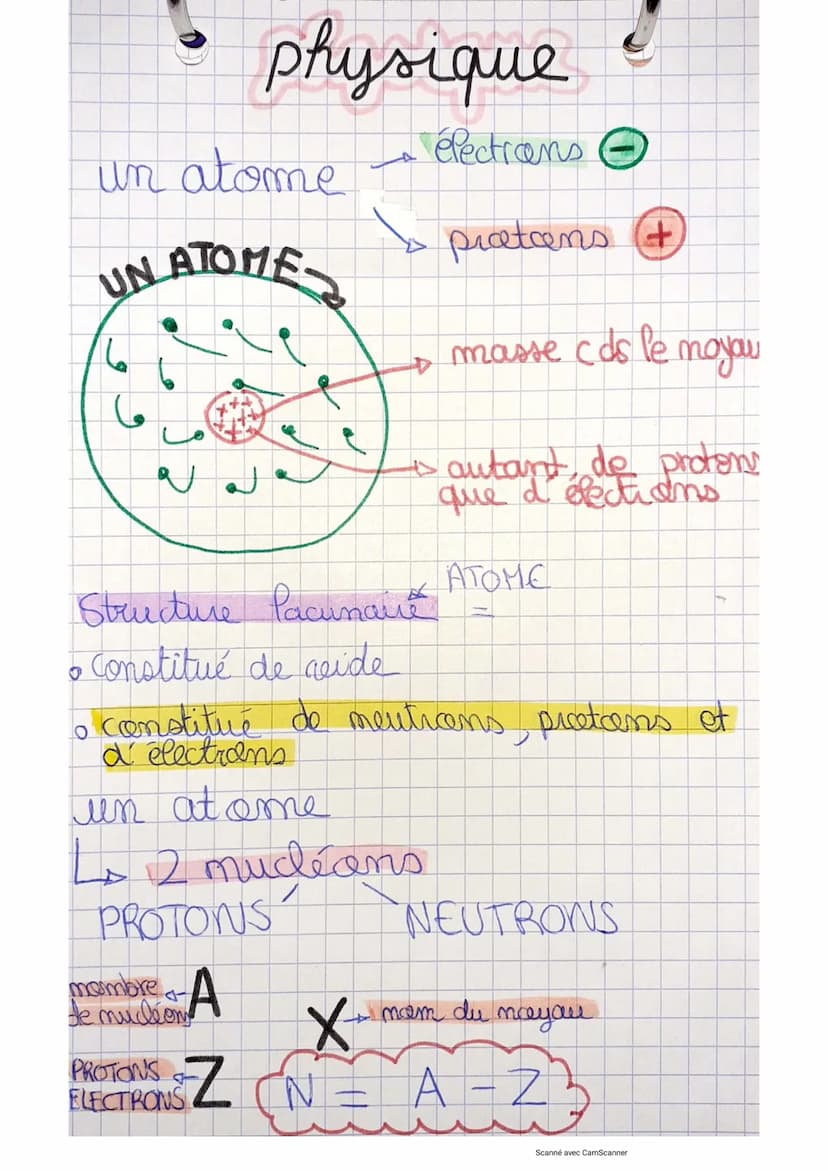 physique
un atome → électrons ⊖
protons ⊕
UN ATOME
masse c ds le noyau
autant de protons
que d'électrons
Structure lacunaire * ATOME
=
o Constitué de vide
o constitué de neutrons, protons et
d'électrons
un atome
↳ 2 nucléons
PROTONS NEUTRONS
nombre
de nucléons ← A
X → nom du noyau
PROTONS
ELECTRONS ← Z
N = A - Z
Scanné avec CamScanner